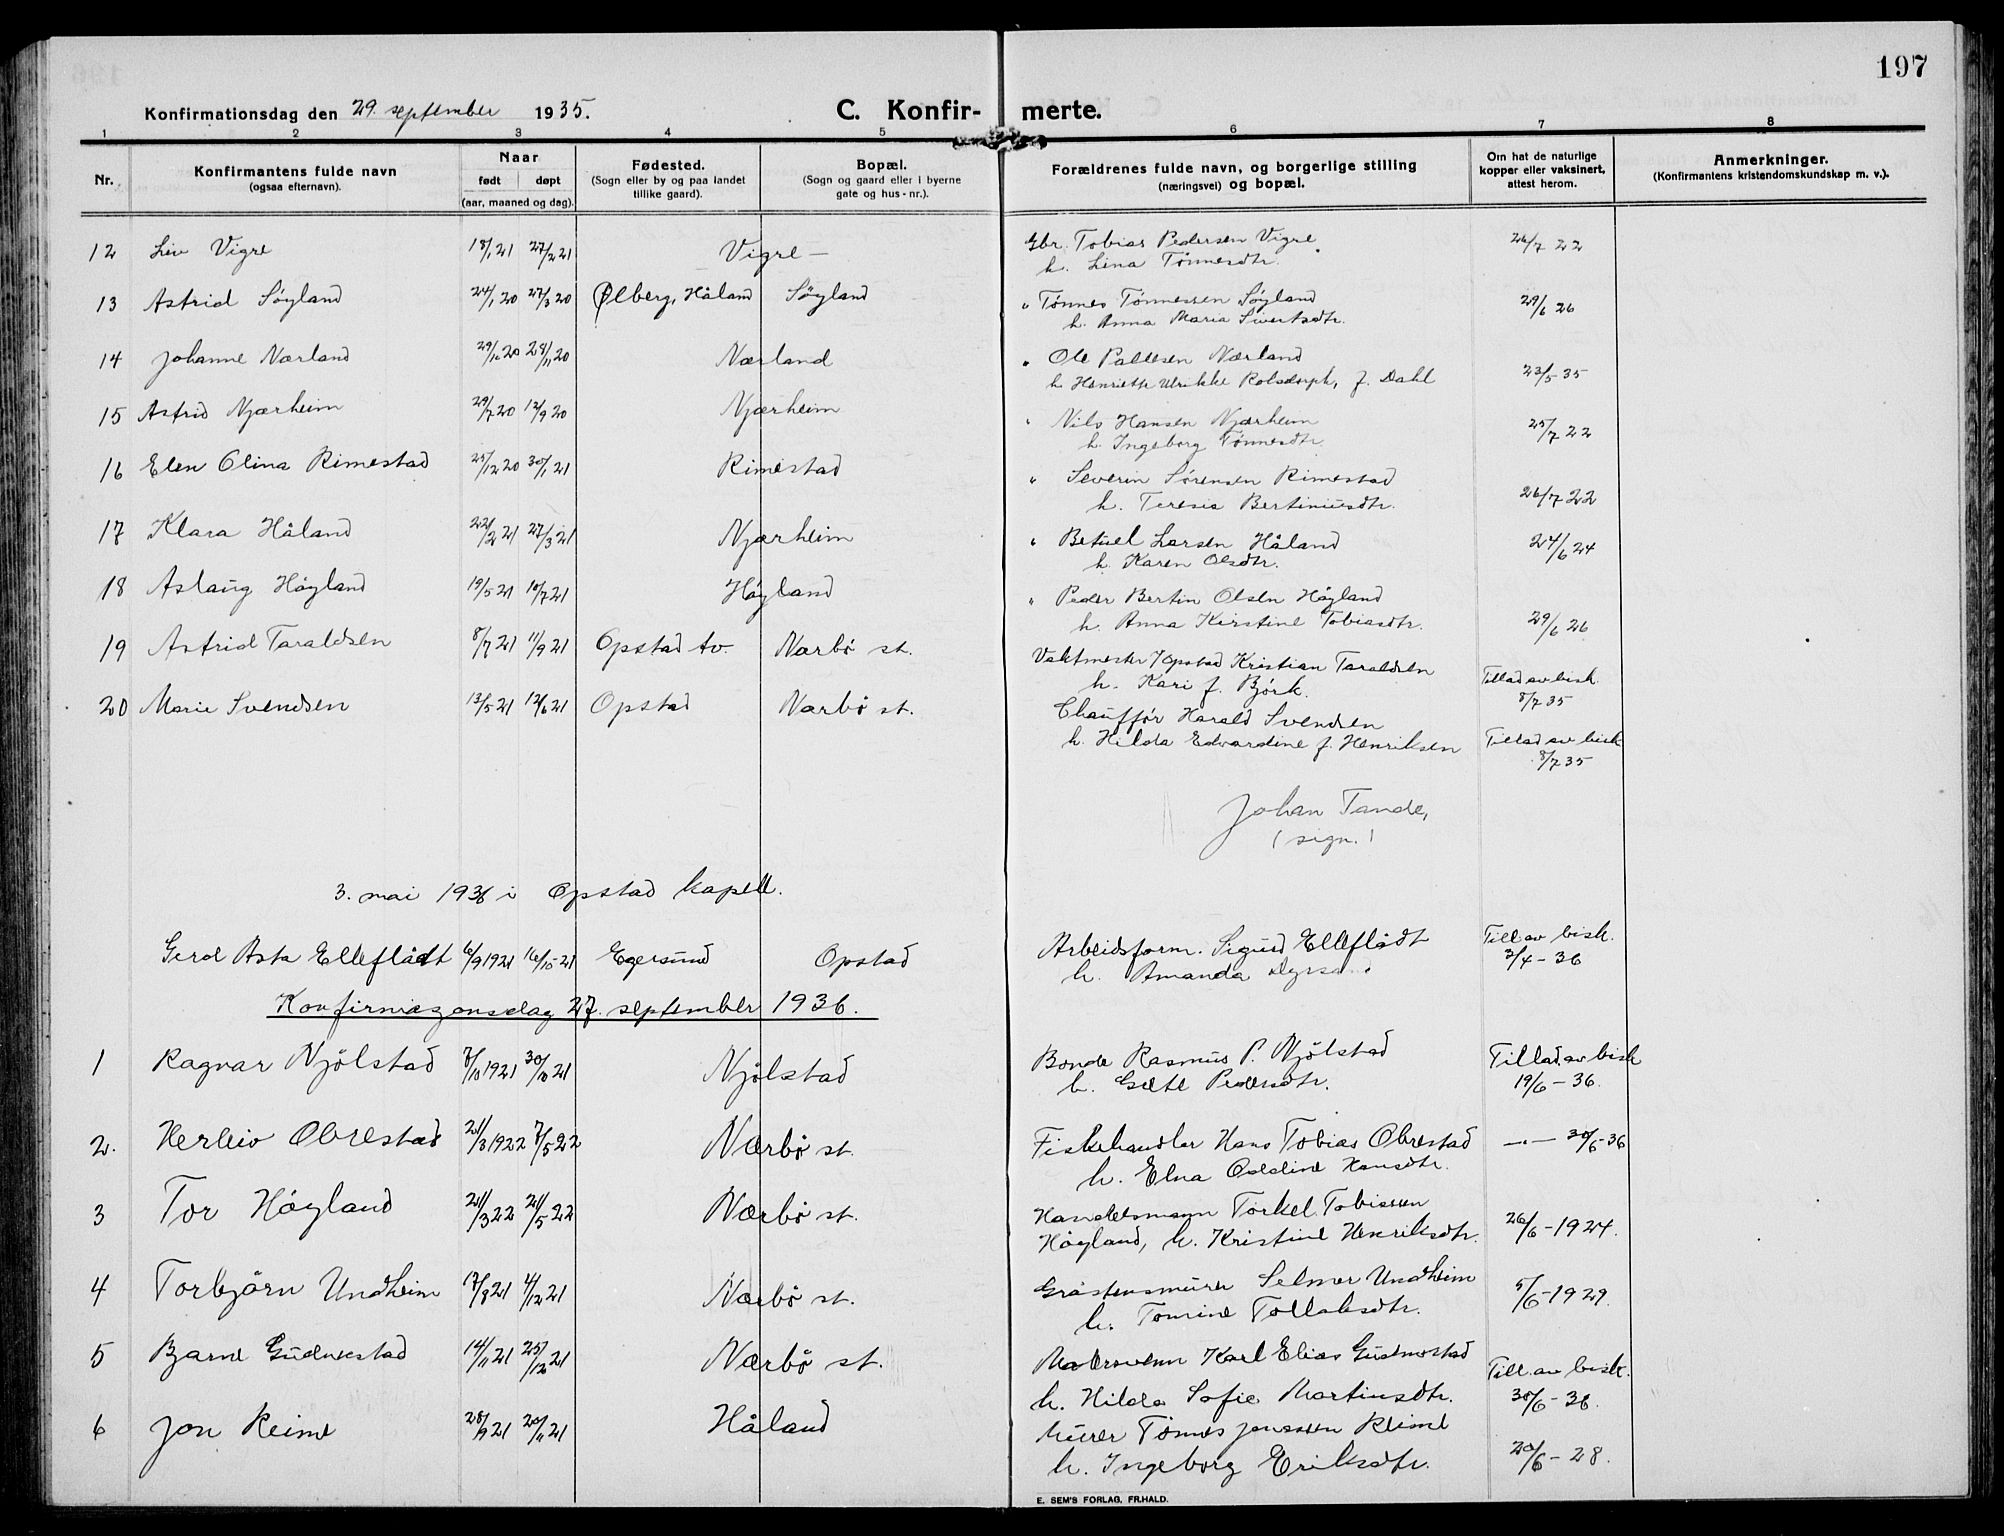 197
Konfirmationsdag den 29. september 1935.
C. Konfir- merte.
1 2 3 4 5 6 7 8
Nr.
Konfirmantens fulde navn
(ogsaa efternavn).
Naar
født døpt
(aar, maaned og dag).
Fødested.
(Sogn eller by og paa landet
tillike gaard).
Bopæl.
(Sogn og gaard eller i byerne
gate og hus-nr.).
Forældrenes fulde navn, og borgerlige stilling
(næringsvei) og bopæl.
Om hat de naturlige
kopper eller vaksinert,
attest herom.
Anmerkninger.
(Konfirmantens kristendomskundskap m. v.).
12 Liv Vigre 18/1 21 27/2 21 Vigre – Gbr. Tobias Pedersen Vigre 26/7 22
h. Lina Tønnesdtr.
13 Astrid Søyland 24/1 20 27/3 20 Ølberg, Håland Søyland " Tønnes Tønnessen Søyland 29/6 26
h. Anna Maria Sivertsdtr.
14 Johanne Nærland 29/10 20 28/11 20 Nærland " Ole Pallesen Nærland
h. Henriette Ulrikke Rolsdorph, f. Dahl 23/5 35
15 Astrid Njærheim 29/7 20 12/9 20 Njærheim " Nils Hansen Njærheim 25/7 22
h. Ingeborg Tønnesdtr.
16 Elen Olina Rimestad 25/12 20 30/1 21 Rimestad " Severin Sørensen Rimestad
h. Teresia Bertiniusdtr. 26/7 22
17 Klara Håland 22/2 21 27/3 21 Njærheim " Betuel Larsen Håland 24/6 24
h. Karen Olsdtr.
18 Aslaug Høyland 19/5 21 10/7 21 Høyland " Peder Bertin Olsen Høyland
h. Anna Kirstine Tobiasdtr. 29/6 26
19 Astrid Taraldsen 8/7 21 11/9 21 Opstad tv. Nærbø st. Vaktmester / Opstad Kristian Taraldsen
h. Kari f. Björk. Tillad av bisk. 8/7 35
20 Marie Svendsen 13/5 21 12/6 21 Opstad Nærbø st. Chauffør Harald Svendsen
h. Hilda Edvardine f. Henriksen Tillad av bisk 8/7 35
Johan Tande,
(sign.)
3. mai 1936 i Opstad kapell.
Gerd Asta Elleflådt 6/9 1921 16/10-21 Egersund Opstad Arbeidsform. Sigurd Elleflådt Till av bisk.
h. Amanda 3/4-36
Konfirmasjonsdag 27. september 1936.
1 Ragnar Njølstad 7/10 1921 30/10 21 Njølstad Bonde Rasmus P. Njølstad Tillad. av bisk
h. Gæte Pedersdtr. 19/6-36.
2. Herleiv Obrestad 21/3 1922 7/5 22 Nærbø st. Fiskehandler Hans Tobias Obrestad —"— 30/6-36
h. Elna Oddine Hansdtr.
3 Tor Høyland 21/3 22 21/5 22 Nærbø st. Handelsmann Torkel Tobiassen
Høyland, h. Kristine Henriksdtr. 26/6-1924.
4 Torbjørn Undheim 17/8 21 4/12 21 Nærbø st. Gråstensmurer Selmer Undheim 5/6-1929.
h. Tomine Tollaksdtr.
5 Bjarne Gudmestad 14/11 21 25/12 21 Nærbø st. Malersvenn Karl Elias Gudmestad Till. av bisk.
h. Hilda Sofie Martinsdtr. 30/6-36.
6 Jon Reime 28/9 21 20/11 21 Håland Murer Tønnes Jonassen Reime
h. Ingeborg Eriksdtr. 20/6-28.
E. SEM'S FORLAG, FR.HALD.